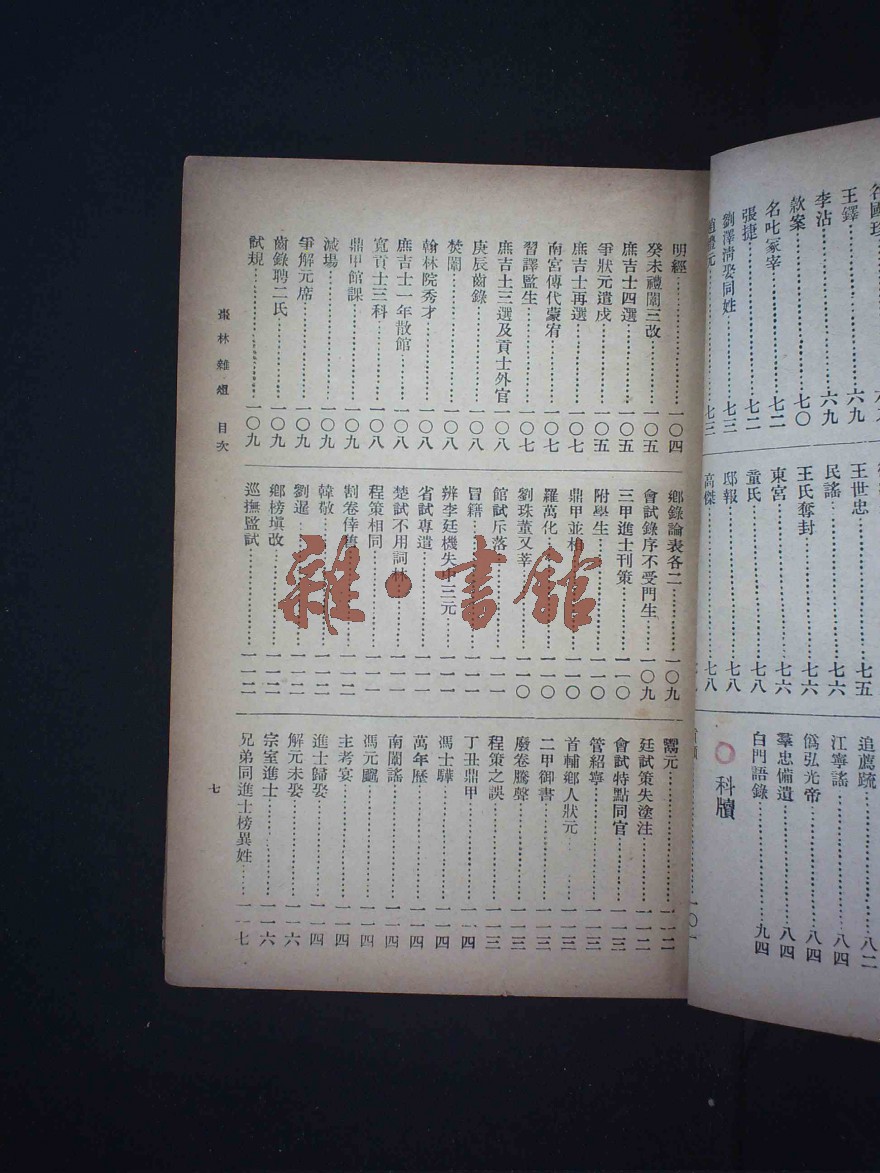 王鐸……六九
李沾……六九
欵案……七〇
名叱冢宰……七二
張捷……七二
劉澤清娶同姓……七三
王世忠……七五
民謠……七六
王氏奪封……七六
東宮……七六
童氏……七八
邸報……七八
高傑……七八
追薦疏……八二
江寧謠……八四
僞弘光帝……八四
羣忠備遺……八四
白門語錄……九四
科牘
明經……一〇四
癸未禮闈三改……一〇五
庶吉士四選……一〇五
爭狀元遣戍……一〇五
庶吉士再選……一〇七
南宮傳代蒙宥……一〇七
習譯監生……一〇七
庶吉士三選及貢士外官……一〇八
庚辰齒錄……一〇八
焚闈……一〇八
翰林院秀才……一〇八
庶吉士一年散館……一〇八
寬貢士三科……一〇八
鼎甲館課……一〇九
滅場……一〇九
爭解元席……一〇九
齒錄聘二氏……一〇九
試規……一〇九
鄉錄論表各二……一〇九
會試錄序不受門生……一〇九
三甲進士刊策……一一〇
附學生……一一〇
鼎甲並相……一一〇
羅萬化……一一〇
劉珠董又莘……一一〇
館試斥落……一一一
冒籍……一一一
辨李廷機失中三元……一一一
省試專遣……一一一
楚試不用詞林……一一一
程策相同……一一一
割卷倖售……一一二
韓敬……一一二
劉暹……一一二
鄉榜塡改……一一二
巡撫監試……一一二
鬻元……一一二
廷試策失塗注……一一二
會試特點同官……一一三
管紹寧……一一三
首輔鄉人狀元……一一三
二甲御書……一一三
廢卷騰聲……一一三
程策之誤……一一三
丁丑鼎甲……一一四
馮士驊……一一四
萬年歷……一一四
南闈謠……一一四
馮元飈……一一四
主考宴……一一四
進士歸娶……一一四
解元未娶……一一六
宗室進士……一一六
兄弟同進士榜異姓……一一七
棗林雜俎 目次
七
雜·書館